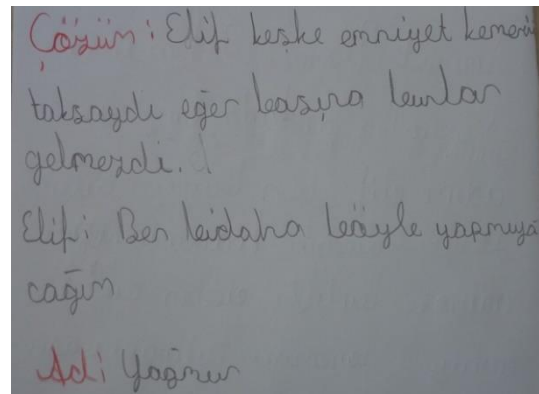 Çözüm: Elif keşke emniyet kemeri
taksaydı eğer basına bunlar
gelmezdi.
Elif: Ben bidaha böyle yapmıya
cağım
Adi Yağmur